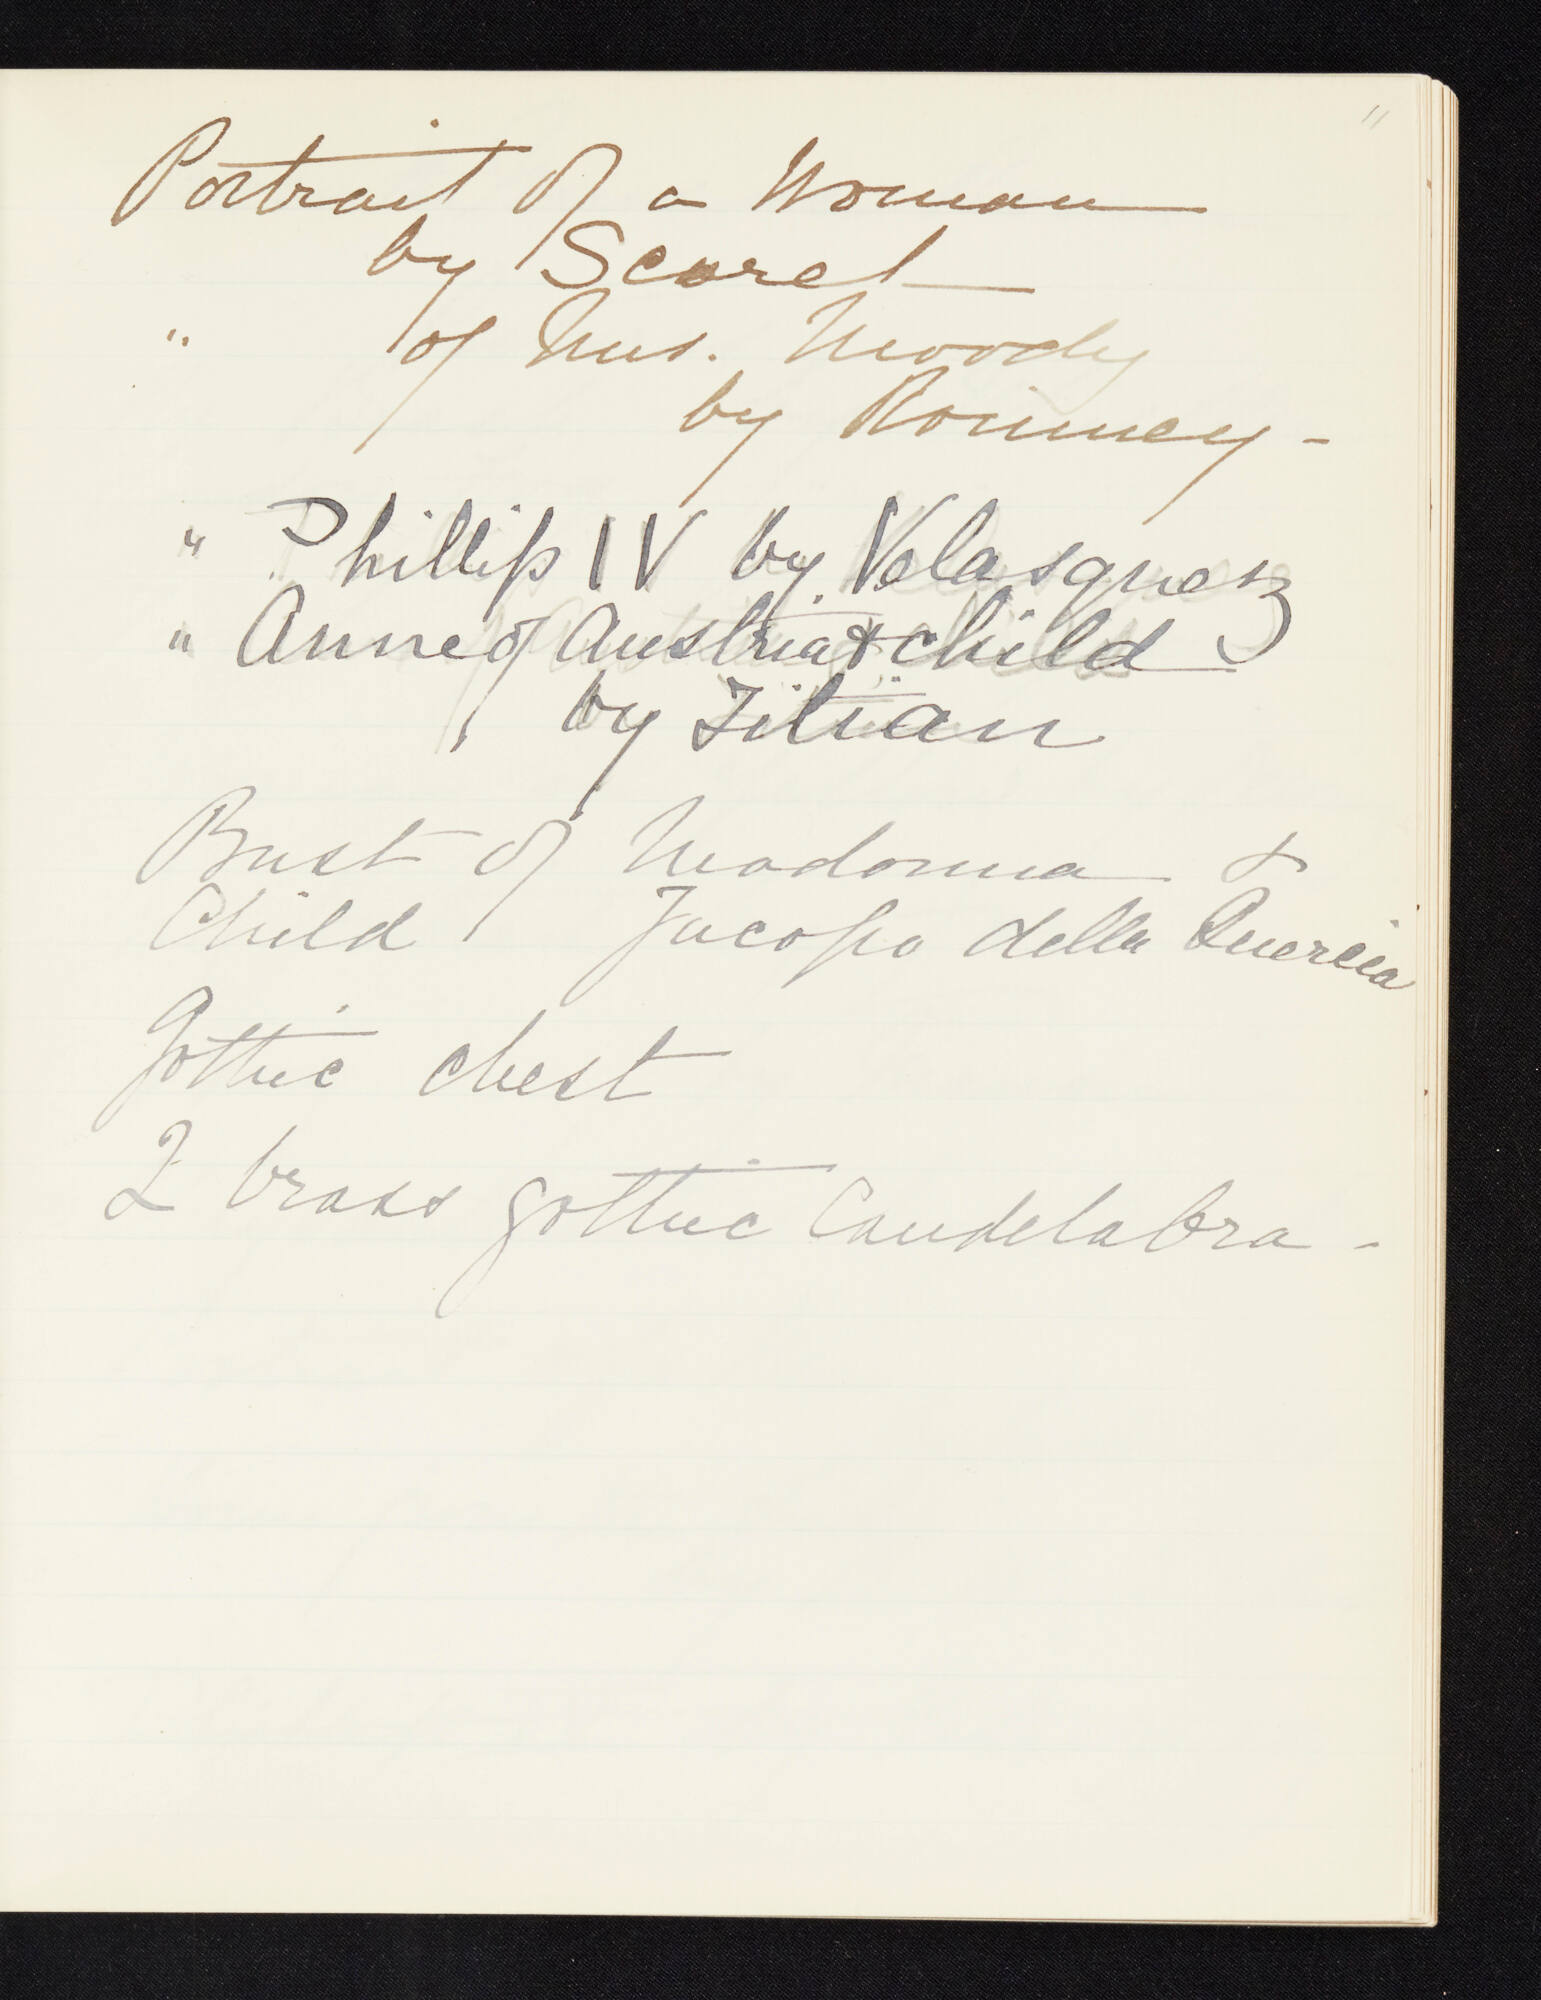 11
Portrait of a Woman
by Scorel
" of Mrs. Moody
by Romney -
" Phillip IV by Velasquez
" Anne of Austria & child
by Titian
Bust of Madonna &
Child Jacopo della Quercia
Gothic chest
2 brass gothic Candelabra -